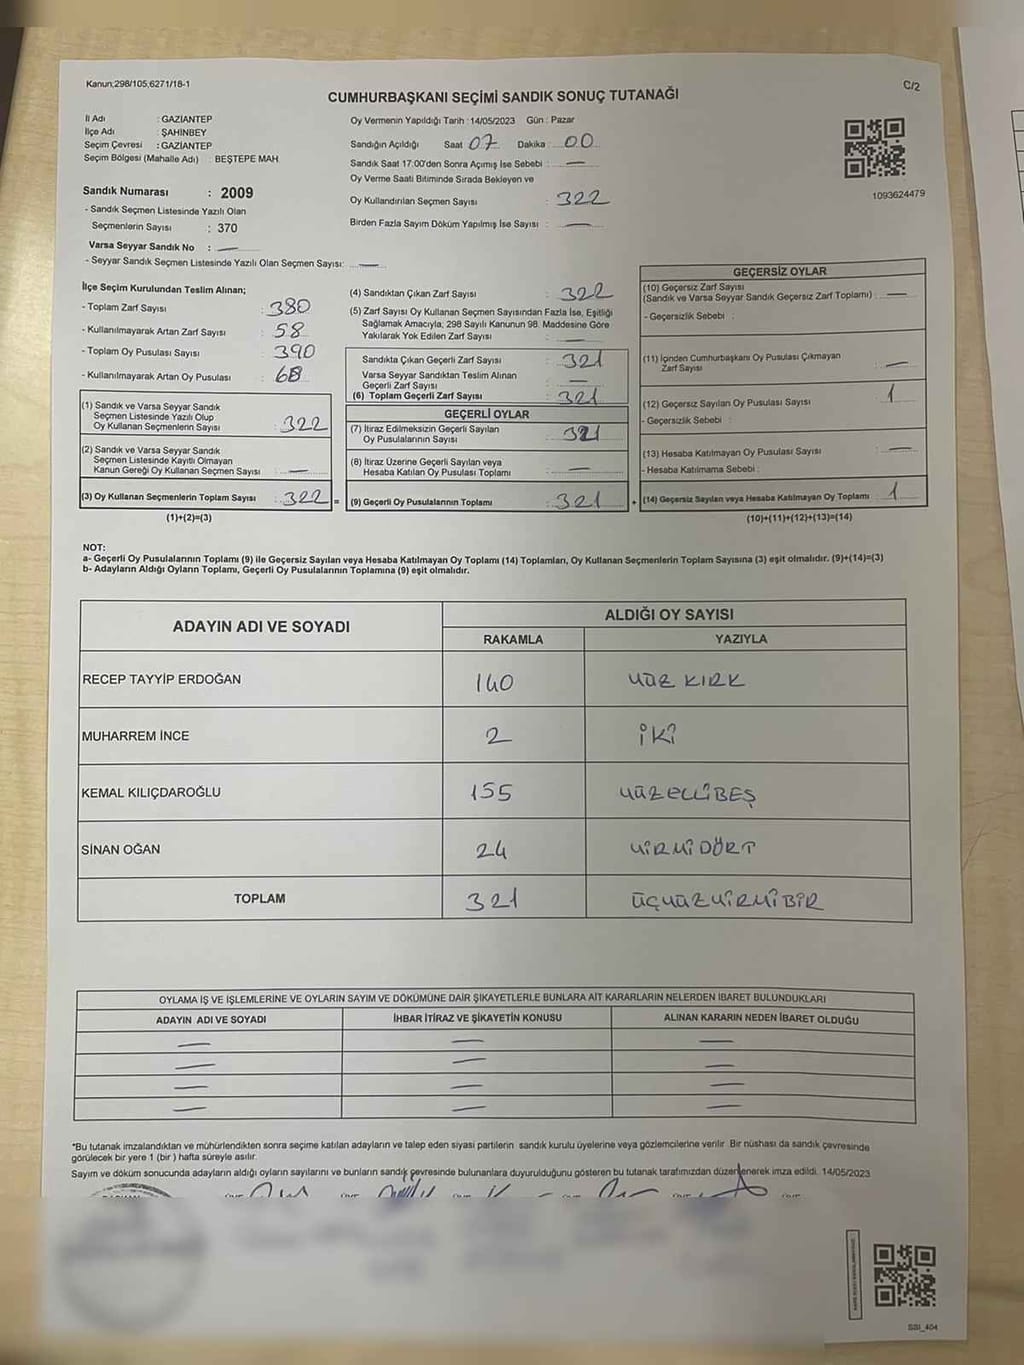 Kanun;298/105,6271/18-1
C/2
CUMHURBAŞKANI SEÇİMİ SANDIK SONUÇ TUTANAĞI
İl Adı : GAZİANTEP
İlçe Adı : ŞAHİNBEY
Seçim Çevresi : GAZİANTEP
Seçim Bölgesi (Mahalle Adı) : BEŞTEPE MAH.
Sandık Numarası : 2009
- Sandık Seçmen Listesinde Yazılı Olan
Seçmenlerin Sayısı : 370
Varsa Seyyar Sandık No : —
- Seyyar Sandık Seçmen Listesinde Yazılı Olan Seçmen Sayısı: —
Oy Vermenin Yapıldığı Tarih : 14/05/2023 Gün : Pazar
Sandığın Açıldığı Saat 07 Dakika : 00
Sandık Saat 17:00'den Sonra Açımış İse Sebebi : —
Oy Verme Saati Bitiminde Sırada Bekleyen ve
Oy Kullandırılan Seçmen Sayısı : 322
Birden Fazla Sayım Döküm Yapılmış İse Sayısı : —
1093624479
İlçe Seçim Kurulundan Teslim Alınan;
- Toplam Zarf Sayısı : 380
- Kullanılmayarak Artan Zarf Sayısı : 58
- Toplam Oy Pusulası Sayısı : 390
- Kullanılmayarak Artan Oy Pusulası : 68
(1) Sandık ve Varsa Seyyar Sandık
Seçmen Listesinde Yazılı Olup
Oy Kullanan Seçmenlerin Sayısı : 322
(2) Sandık ve Varsa Seyyar Sandık
Seçmen Listesinde Kayıtlı Olmayan
Kanun Gereği Oy Kullanan Seçmen Sayısı : —
(3) Oy Kullanan Seçmenlerin Toplam Sayısı : 322 =
(1)+(2)=(3)
(4) Sandıktan Çıkan Zarf Sayısı : 322
(5) Zarf Sayısı Oy Kullanan Seçmen Sayısından Fazla İse, Eşitliği
Sağlamak Amacıyla; 298 Sayılı Kanunun 98. Maddesine Göre
Yakılarak Yok Edilen Zarf Sayısı : —
Sandıkta Çıkan Geçerli Zarf Sayısı : 321
Varsa Seyyar Sandıktan Teslim Alınan
Geçerli Zarf Sayısı : —
(6) Toplam Geçerli Zarf Sayısı : 321
GEÇERLİ OYLAR
(7) İtiraz Edilmeksizin Geçerli Sayılan
Oy Pusulalarının Sayısı : 321
(8) İtiraz Üzerine Geçerli Sayılan veya
Hesaba Katılan Oy Pusulası Toplamı : —
(9) Geçerli Oy Pusulalarının Toplamı : 321 +
GEÇERSİZ OYLAR
(10) Geçersiz Zarf Sayısı
(Sandık ve Varsa Seyyar Sandık Geçersiz Zarf Toplamı) : —
- Geçersizlik Sebebi :
(11) İçinden Cumhurbaşkanı Oy Pusulası Çıkmayan
Zarf Sayısı : —
(12) Geçersiz Sayılan Oy Pusulası Sayısı : 1
- Geçersizlik Sebebi :
(13) Hesaba Katılmayan Oy Pusulası Sayısı : —
- Hesaba Katılmama Sebebi :
(14) Geçersiz Sayılan veya Hesaba Katılmayan Oy Toplamı : 1
(10)+(11)+(12)+(13)=(14)
NOT:
a- Geçerli Oy Pusulalarının Toplamı (9) ile Geçersiz Sayılan veya Hesaba Katılmayan Oy Toplamı (14) Toplamları, Oy Kullanan Seçmenlerin Toplam Sayısına (3) eşit olmalıdır. (9)+(14)=(3)
b- Adayların Aldığı Oyların Toplamı, Geçerli Oy Pusulalarının Toplamına (9) eşit olmalıdır.
ADAYIN ADI VE SOYADI
ALDIĞI OY SAYISI
RAKAMLA YAZIYLA
RECEP TAYYİP ERDOĞAN 140 YÜZ KIRK
MUHARREM İNCE 2 İKİ
KEMAL KILIÇDAROĞLU 155 YÜZELLİBEŞ
SİNAN OĞAN 24 YİRMİDÖRT
TOPLAM 321 ÜÇYÜZYİRMİBİR
OYLAMA İŞ VE İŞLEMLERİNE VE OYLARIN SAYIM VE DÖKÜMÜNE DAİR ŞİKAYETLERLE BUNLARA AİT KARARLARIN NELERDEN İBARET BULUNDUKLARI
ADAYIN ADI VE SOYADI İHBAR İTİRAZ VE ŞİKAYETİN KONUSU ALINAN KARARIN NEDEN İBARET OLDUĞU
— — —
— — —
— — —
— — —
*Bu tutanak imzalandıktan ve mühürlendikten sonra seçime katılan adayların ve talep eden siyasi partilerin sandık kurulu üyelerine veya gözlemcilerine verilir. Bir nüshası da sandık çevresinde
görülecek bir yere 1 (bir) hafta süreyle asılır.
Sayım ve döküm sonucunda adayların aldığı oyların sayılarını ve bunların sandık çevresinde bulunanlara duyurulduğunu gösteren bu tutanak tarafımızdan düzenlenerek imza edildi. 14/05/2023
SSI_404